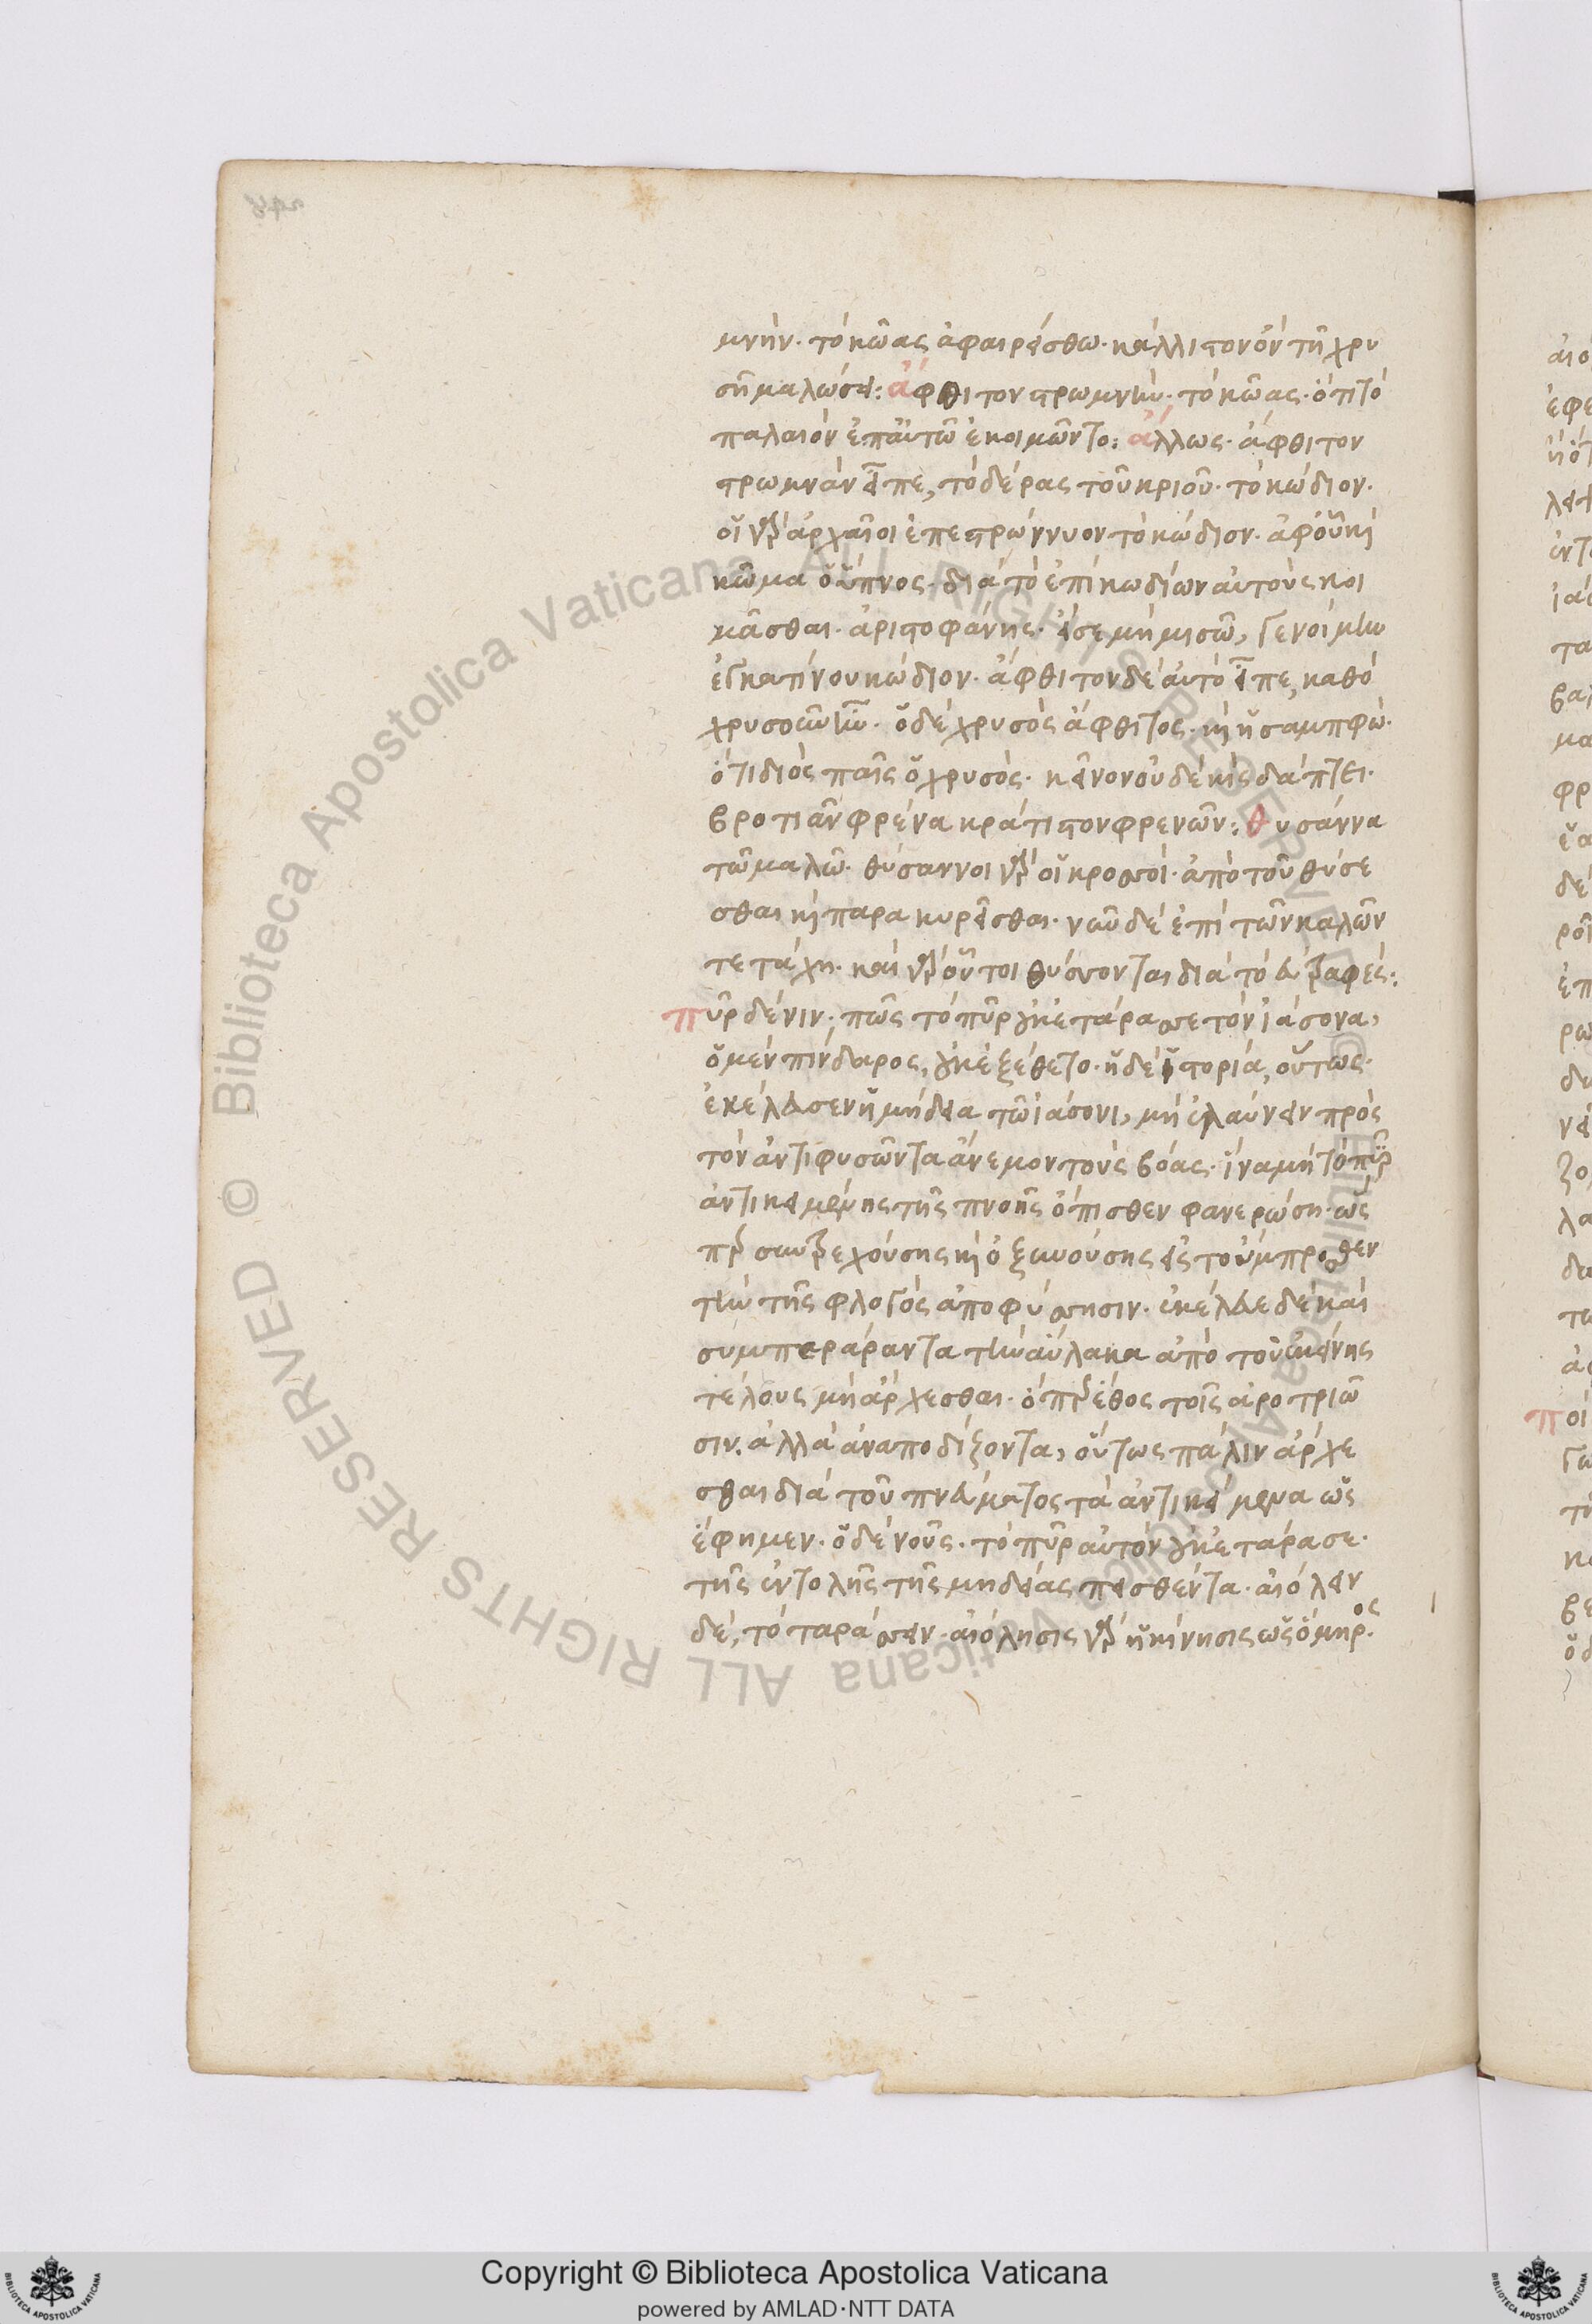 μνὴν· τὸ κῶας ἀφαιρείσθω· κάλλιστον ὂν τῇ χρυ
σῇ μαλώσει: ἄφθιτον στρωμνὴν· τὸ κῶας· ὅτι τὸ
παλαιὸν ἐπ' αὐτῶ ἐκοιμῶντο: ἄλλως· ἄφθιτον
στρωμνὰν εἶπε, τὸ δέρας τοῦ κριοῦ· τὸ κώδιον·
οἱ γὰρ ἀρχαῖοι ἐπεστρώννυον τὸ κώδιον· ἀφ' οὗ καὶ
κῶμα ὁ ὕπνος· διὰ τὸ ἐπὶ κωδίων αὐτοὺς κοι
μᾶσθαι· ἀριστοφάνης· εἴ σε μὴ μισῶ, γενοίμην
ἐγ κρατίνου κώδιον· ἄφθιτον δὲ αὐτὸ εἶπε, καθὸ
χρυσοῦν ἦν· ὁ δὲ χρυσὸς ἄφθιτος· καὶ ἡ σαμπφὼ·
ὅτι διὸς παῖς ὁ χρυσὸς· κεῖνον οὐδὲ κὶς δάπτει·
βροτιᾶν φρένα κράτιστον φρενῶν: θυσάννα
τῶ μαλῶ· θύσαννοι γὰρ οἱ κροσσοὶ· ἀπὸ τοῦ θύσε
σθαι καὶ παρακυρεῖσθαι· νῦν δὲ ἐπὶ τῶν καλῶν
τετάχη· καὶ γὰρ οὗτοι θύσονται διὰ τὸ εὐτραφές:
πῦρ δέ νιν· πῶς τὸ πῦρ οὐκ ἐτάρασσε τὸν ἰάσονα,
ὁ μὲν πίνδαρος, οὐκ ἐξέθετο· ἡ δὲ ἱστορία, οὕτως·
ἐκέλευσεν ἡ μήδεια τῶ ἰάσονι, μὴ ἐλαύνειν πρὸς
τὸν ἀντιφυσῶντα ἄνεμον τοὺς βόας· ἵνα μὴ τὸ πῦρ
ἀντικειμένης τῆς πνοῆς ὄπισθεν φανερώση· ὡς
περ συντρεχούσης καὶ ὀξυνούσης εἰς τοὔμπροσθεν
τὴν τῆς φλογὸς ἀποφύσησιν· ἐκέλευε δὲ καὶ
συμπεράραντα τὴν αὔλακα ἀπὸ τοῦ ἐκείνης
τέλους μὴ ἄρχεσθαι· ὅπερ ἔθος τοῖς ἀροτριῶ
σιν. ἀλλὰ ἀναποδίζοντα, οὕτως πάλιν ἄρχε
σθαι διὰ τοῦ πνεύματος τὰ ἀντικείμενα ὡς
ἔφημεν· ὁ δὲ νοῦς· τὸ πῦρ αὐτὸν οὐκ ἐτάρασε·
τῆς ἐντολῆς τῆς μηδείας πεισθέντα· αἰόλειν
δὲ, τὸ ταράσσειν· αἰόλησις γὰρ ἡ κίνησις ὡς ὅμηρος·
Copyright © Biblioteca Apostolica Vaticana
powered by AMLAD·NTT DATA